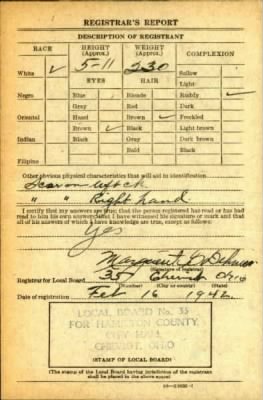 REGISTRAR'S REPORT
DESCRIPTION OF REGISTRANT
RACE HEIGHT (Approx.) WEIGHT (Approx.) COMPLEXION
White ✓ 5-11 230 Sallow
EYES HAIR Light
Negro Blue Blonde Ruddy ✓
Gray Red Dark
Oriental Hazel Brown ✓ Freckled
Brown ✓ Black Light brown
Indian Black Gray Dark brown
Bald Black
Filipino
Other obvious physical characteristics that will aid in identification
Scar on left
" " Right hand
I certify that my answers are true; that the person registered has read or has had read to him his own answers; that I have witnessed his signature or mark and that all of his answers of which I have knowledge are true, except as follows:
Yes
Margaret
(Signature of registrar)
Registrar for Local Board 35 Ohio
(Number) (City or county) (State)
Date of registration Feb 16 1942
LOCAL BOARD No. 35
FOR HAMILTON COUNTY
CITY HALL
CHEVIOT, OHIO
(STAMP OF LOCAL BOARD)
(The stamp of the Local Board having jurisdiction of the registrant shall be placed in the above space.)